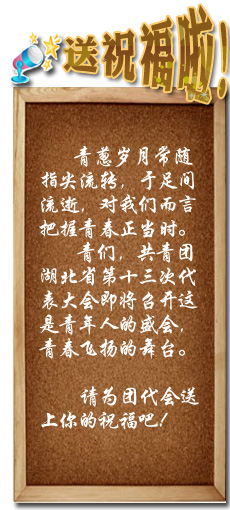 送祝福啦!
青葱岁月常随
指尖流转，于足间
流逝，对我们而言
把握青春正当时。
青们，共青团
湖北省第十三次代
表大会即将召开这
是青年人的盛会，
青春飞扬的舞台。
请为团代会送
上你的祝福吧!